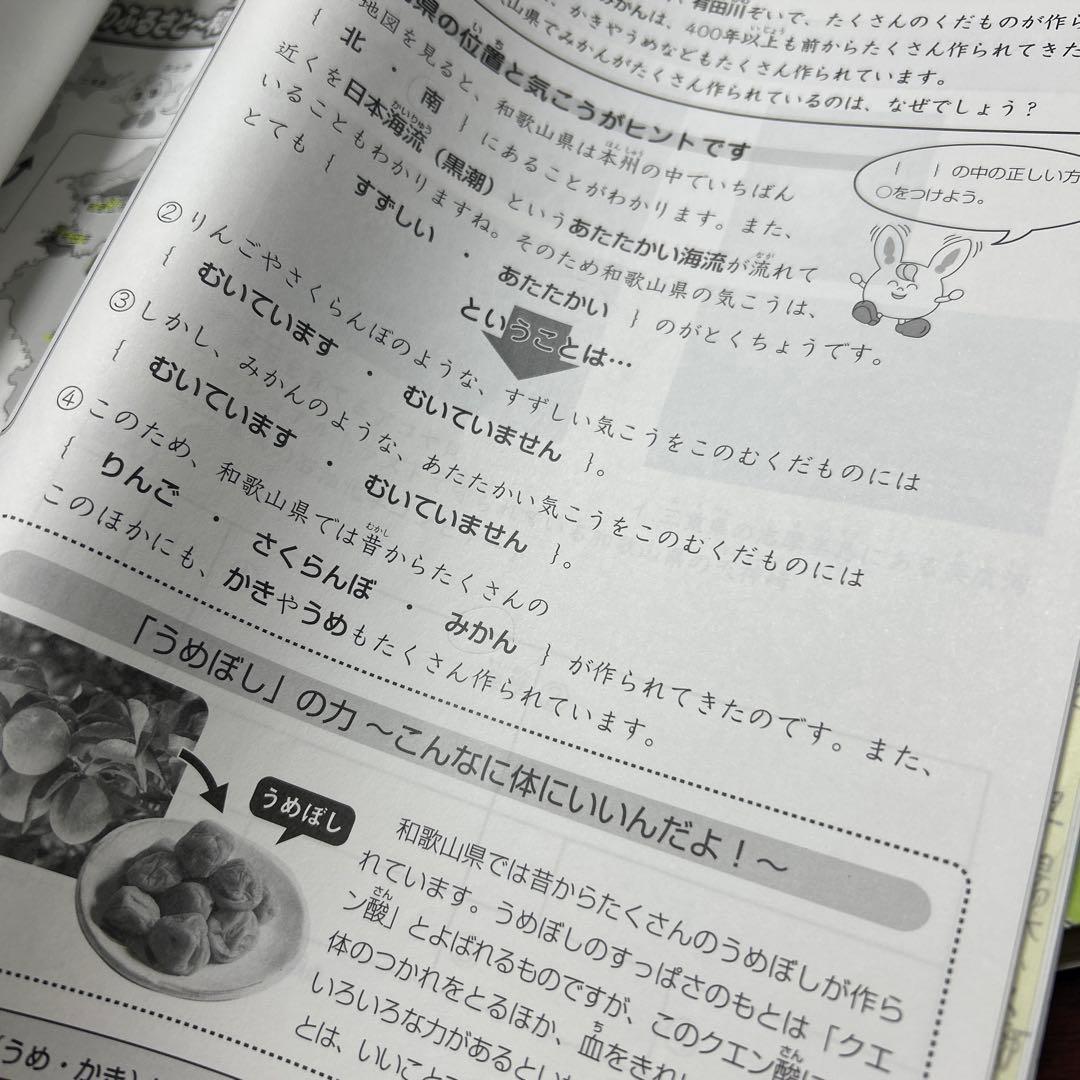 のふるさと〜
有田川ぞいて、たくさんのくだものが作ら
みかんは、400年以上も前からたくさん作られてきた
かきやうめなどもたくさん作られています。
山県でみかんがたくさん作られているのは、なぜでしょう？
県の位置と気こうがヒントです
地図を見ると、和歌山県は本州の中ていちばん
{ 北 ・ 南 } にあることがわかります。また、
近くを日本海流（黒潮）というあたたかい海流が流れて
いることもわかりますね。そのため和歌山県の気こうは、
とても { すずしい ・ あたたかい } のがとくちょうです。
{ } の中の正しい方
○をつけよう。
ということは…
② りんごやさくらんぼのような、すずしい気こうをこのむくだものには
{ むいています ・ むいていません }。
③ しかし、みかんのような、あたたかい気こうをこのむくだものには
{ むいています ・ むいていません }。
④ このため、和歌山県では昔からたくさんの
{ りんご ・ さくらんぼ ・ みかん } が作られてきたのです。また、
このほかにも、かきやうめもたくさん作られています。
「うめぼし」の力 〜こんなに体にいいんだよ！〜
うめぼし
和歌山県では昔からたくさんのうめぼしが作ら
れています。うめぼしのすっぱさのもとは「クエ
ン酸」とよばれるものですが、このクエン酸に
体のつかれをとるほか、血をきれ
いろいろな力があるとい
とは、いいこと
うめ・かき